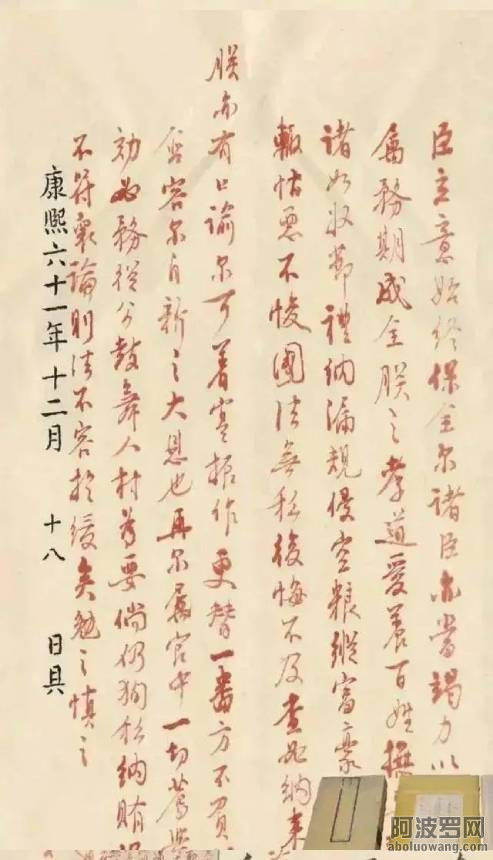 臣主意始終保全尔諸臣亦當竭力以
属務期成全朕之孝道愛養百姓
諸如收節禮納漏規侵空粮縱富豪
怙悪不悛國法無私後悔不及查納
朕亦有口諭尔可着寔振作更替一番方不負
容尔自新之大恩也再尔属官中一切薦
効必務從公鼓舞人材為要倘仍狥私納賄
不符衆論則法不容於緩矣勉之慎之
康熙六十一年十二月 十八 日具
阿波罗网
aboluowang.com